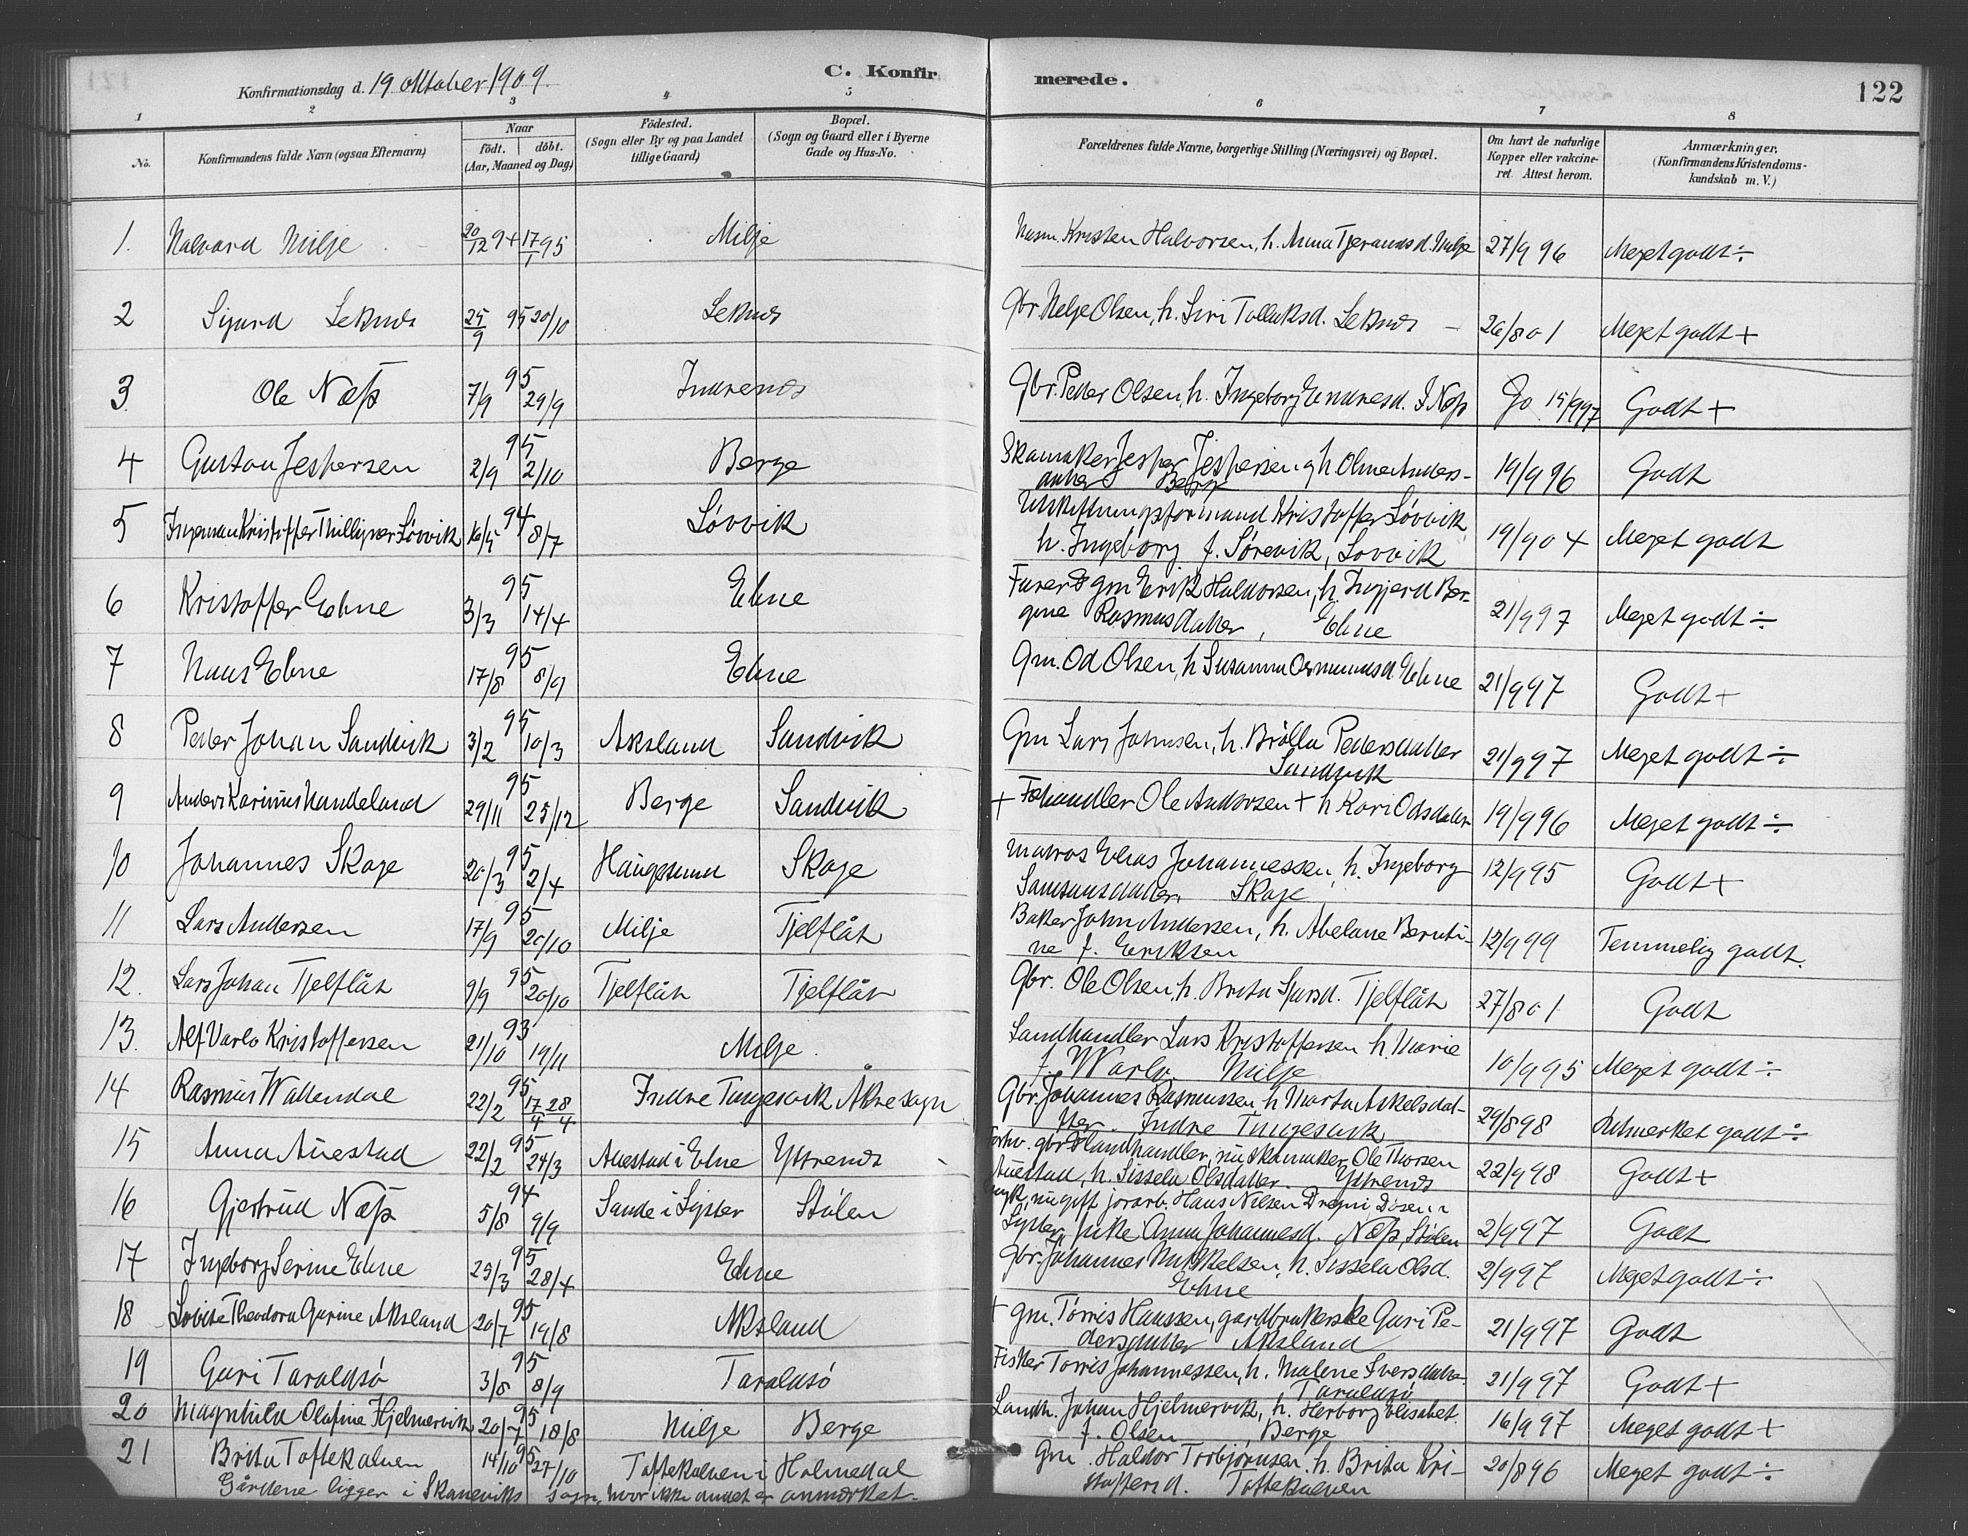 C. Konfirmerede.
122
Konfirmationsdag d. 19 oktober 1909.
1 2 3 4 5 6 7 8
No.
Konfirmandens fulde Navn (ogsaa Efternavn)
Naar
födt. döbt.
(Aar, Maaned og Dag)
Födested.
(Sogn eller By og paa Landet
tillige Gaard)
Bopæl.
(Sogn og Gaard eller i Byerne
Gade og Hus-No.
Forældrenes fulde Navne, borgerlige Stilling (Næringsvei) og Bopæl.
Om havt de naturlige
Kopper eller vakcine-
ret. Attest herom.
Anmærkninger.
(Konfirmandens Kristendoms-
kundskab m. V.)
1. Halvard Milje 20/12 94 17/1 95 Milje Kristen Halvorsen, h. Anna Tjerandsd. Milje 27/9 96 Meget godt ÷
2 Sigurd Leknes 25/9 95 20/10 Leknes Gbr. Helje Olsen, h. Siri Tolleksd. Leknes 26/8 01 Meget godt +
3. Ole Næss 7/9 95 29/9 Indrenes Gbr. Peder Olsen, h. Ingeborg Endresd. I. Næss 15/9 97 Godt +
4 Gustav Jespersen 2/9 95 2/10 Berge Skomaker Jesper Jespersen og h. Oline Anders-
datter Berge 19/9 96 Godt
5 Ingeman Kristoffer Thillqver Løvvik 16/5 94 8/7 Løvvik Utskiftningsformand Kristoffer Løvvik,
h. Ingeborg f. Sørevik, Løvvik 19/9 04 Meget godt
6 Kristoffer Ebne 3/3 95 14/4 Ebne gm Erik Haldorsen, h. Ingjerd Ber-
gine Rasmusdatter, Ebne 21/9 97 Meget godt ÷
7 Hans Ebne 17/8 95 8/9 Ebne Gm. Od Olsen, h. Susanna Osmundsd. Ebne 21/9 97 Godt +
8 Peder Johan Sandvik 3/2 95 10/3 Aksland Sandvik Gm Lars Johnsen, h. Brølla Pedersdatter
Sandvik 21/9 97 Meget godt ÷
9 Anders Karinius Handeland 29/11 95 25/12 Berge Sandvik + Fehandler Ole Andersen + h Kari Odsdatter 19/9 96 Meget godt ÷
10 Johannes Skoge 20/3 95 2/4 Haugesund Skoge Matros Elias Johannessen, h. Ingeborg
Samsonsdatter. Skoge 12/9 95 Godt +
11 Lars Andersen 17/9 95 20/10 Milje Tjelflåt Baker John Andersen, h. Abelane Bernti-
ne f. Eriksen 12/9 99 Temmelig godt.
12. Lars Johan Tjelflåt 9/9 95 20/10 Tjelflåt Tjelflåt Gbr. Ole Olsen, h. Brita Sjursd. Tjelflåt 27/8 01 Godt
13. Alf Varlo Kristoffersen 21/10 93 19/11 Milje. Landhandler Lars Kristoffersen h Marie
f. Warlo Milje 10/9 95 Meget godt ÷
14 Rasmus Wattendal 22/2 95 17/4 28/4 Indre Tungesvik Åkre sogn Gbr. Johannes Rasmussen h Marta Askelsdat-
ter. Indre Tungesvik 29/8 98 Udmerket godt ÷
15 Anna Auestad 22/2 95 24/3 Auestad i Ebne Ystrenes Forhv. gbr & landhandler, nu skomaker Ole Thorsen
Auestad, h. Sissela Olsdatter. Ystrenes 22/9 98 Godt +
16 Gjertrud Næss 5/8 94 9/9 Sande i Lyster Stølen nu gift jorarb. Hans Nilsen Dregni, Døsen i
Lyster, pike Anna Johannesd. Næss, Stølen 2/9 97 Godt
17 Ingeborg Serine Ebne 25/3 95 28/4 Ebne Gbr. Johannes Mikkelsen, h. Sissela Olsd.
Ebne 2/9 97 Meget godt ÷
18 Lovise Theodora Gurine Aksland 20/7 95 19/8 Aksland + gm. Tørris Hanssen, gardbrukerske Guri Pe-
dersdatter Aksland 21/9 97 Godt
19 Guri Taraldsø 3/8 95 8/9 Taraldsø Fisker Tørris Johannessen, h. Malene Iversdatter
Taraldsø 21/9 97 Godt +
20 Magnhild Olafine Hjelmervik 20/7 95 18/8 Milje Berge Landh. Johan Hjelmervik, h. Herborg Elisabet
f. Olsen, Berge 16/9 97 Meget godt +
21 Brita Toftekalven 14/10 95 27/10 Toftekalven i Holmedal Gm. Haldor Torbjørnsen h. Brita Kri-
stoffersd. Toftekalven 20/8 96 Meget godt ÷
Gårdene ligger i Skånevik sogn, hvor ikke andet er anmerket.